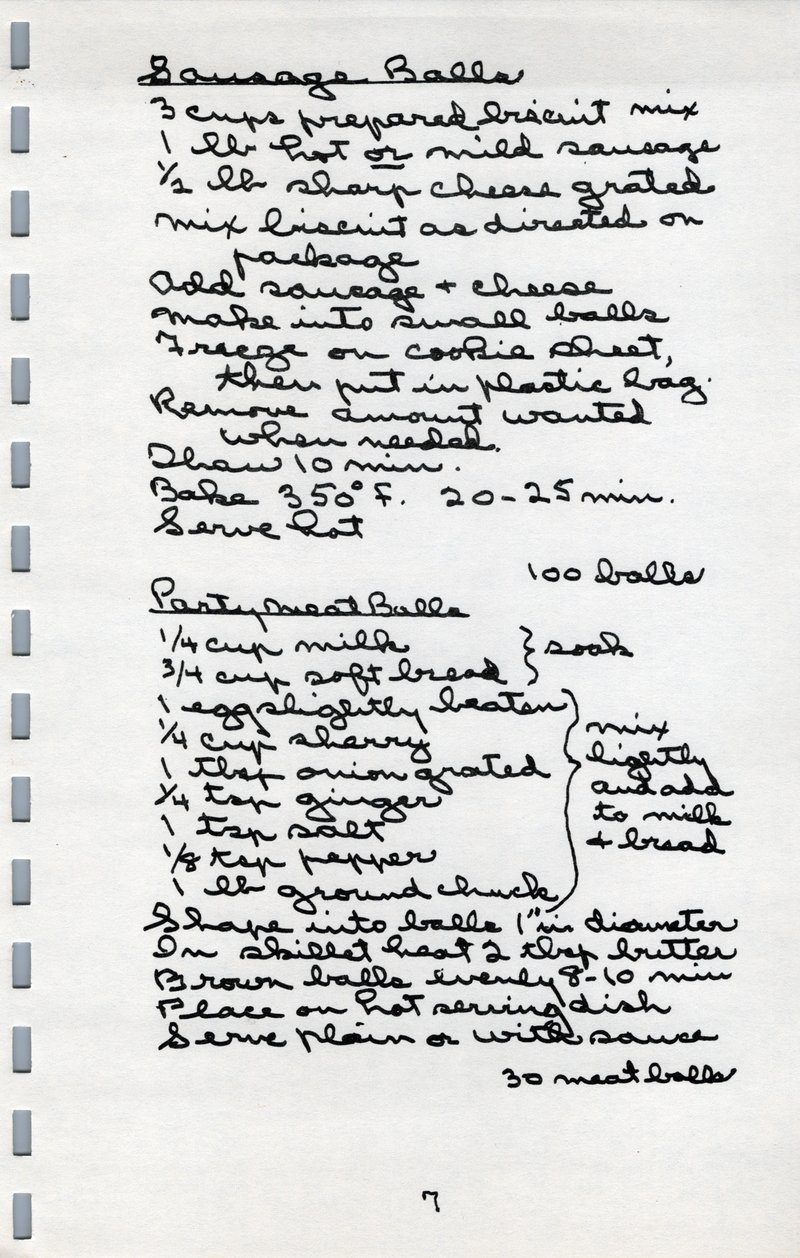 Sausage Balls
3 cups prepared biscuit mix
1 lb hot or mild sausage
1/2 lb sharp cheese grated
mix biscuit as directed on
package
Add sausage + cheese
make into small balls
Freeze on cookie sheet,
then put in plastic bag.
Remove amount wanted
when needed.
Thaw 10 min.
Bake 350° F. 20-25 min.
Serve hot
100 balls
Party meat Balls
1/4 cup milk } soak
3/4 cup soft bread
1 egg slightly beaten
1/4 cup sherry
1 tbsp onion grated
1/4 tsp ginger
1 tsp salt
1/8 tsp pepper
1 lb ground chuck
} mix
lightly
and add
to milk
+ bread
Shape into balls 1" in diameter
In skillet heat 2 tbsp butter
Brown balls evenly 8-10 min
Place on hot serving dish
Serve plain or with sauce
30 meat balls
7